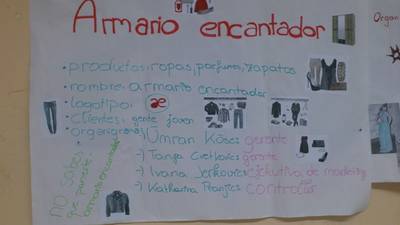 Armario encantador
• productos: ropas, perfumes, zapatos
• nombre: armario encantador
• logotipo: ae
• clientes: gente joven
• organigrama
Umran Köses gerente
-) Tanja Cvetkovic gerente
-) Ivana ejekutiva de marketing
-) Katharina contrólas
NO sabes que ponerte armario encantador
Organ